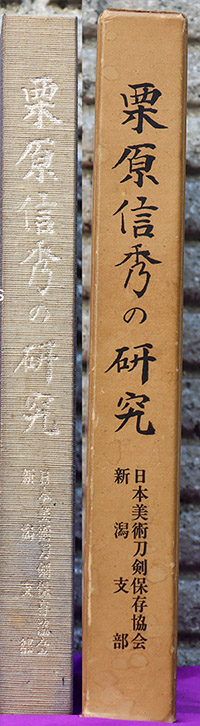 栗原信秀の研究
日本美術刀剣保存協会
新潟支部
栗原信秀の研究
日本美術刀剣保存協会
新潟支部